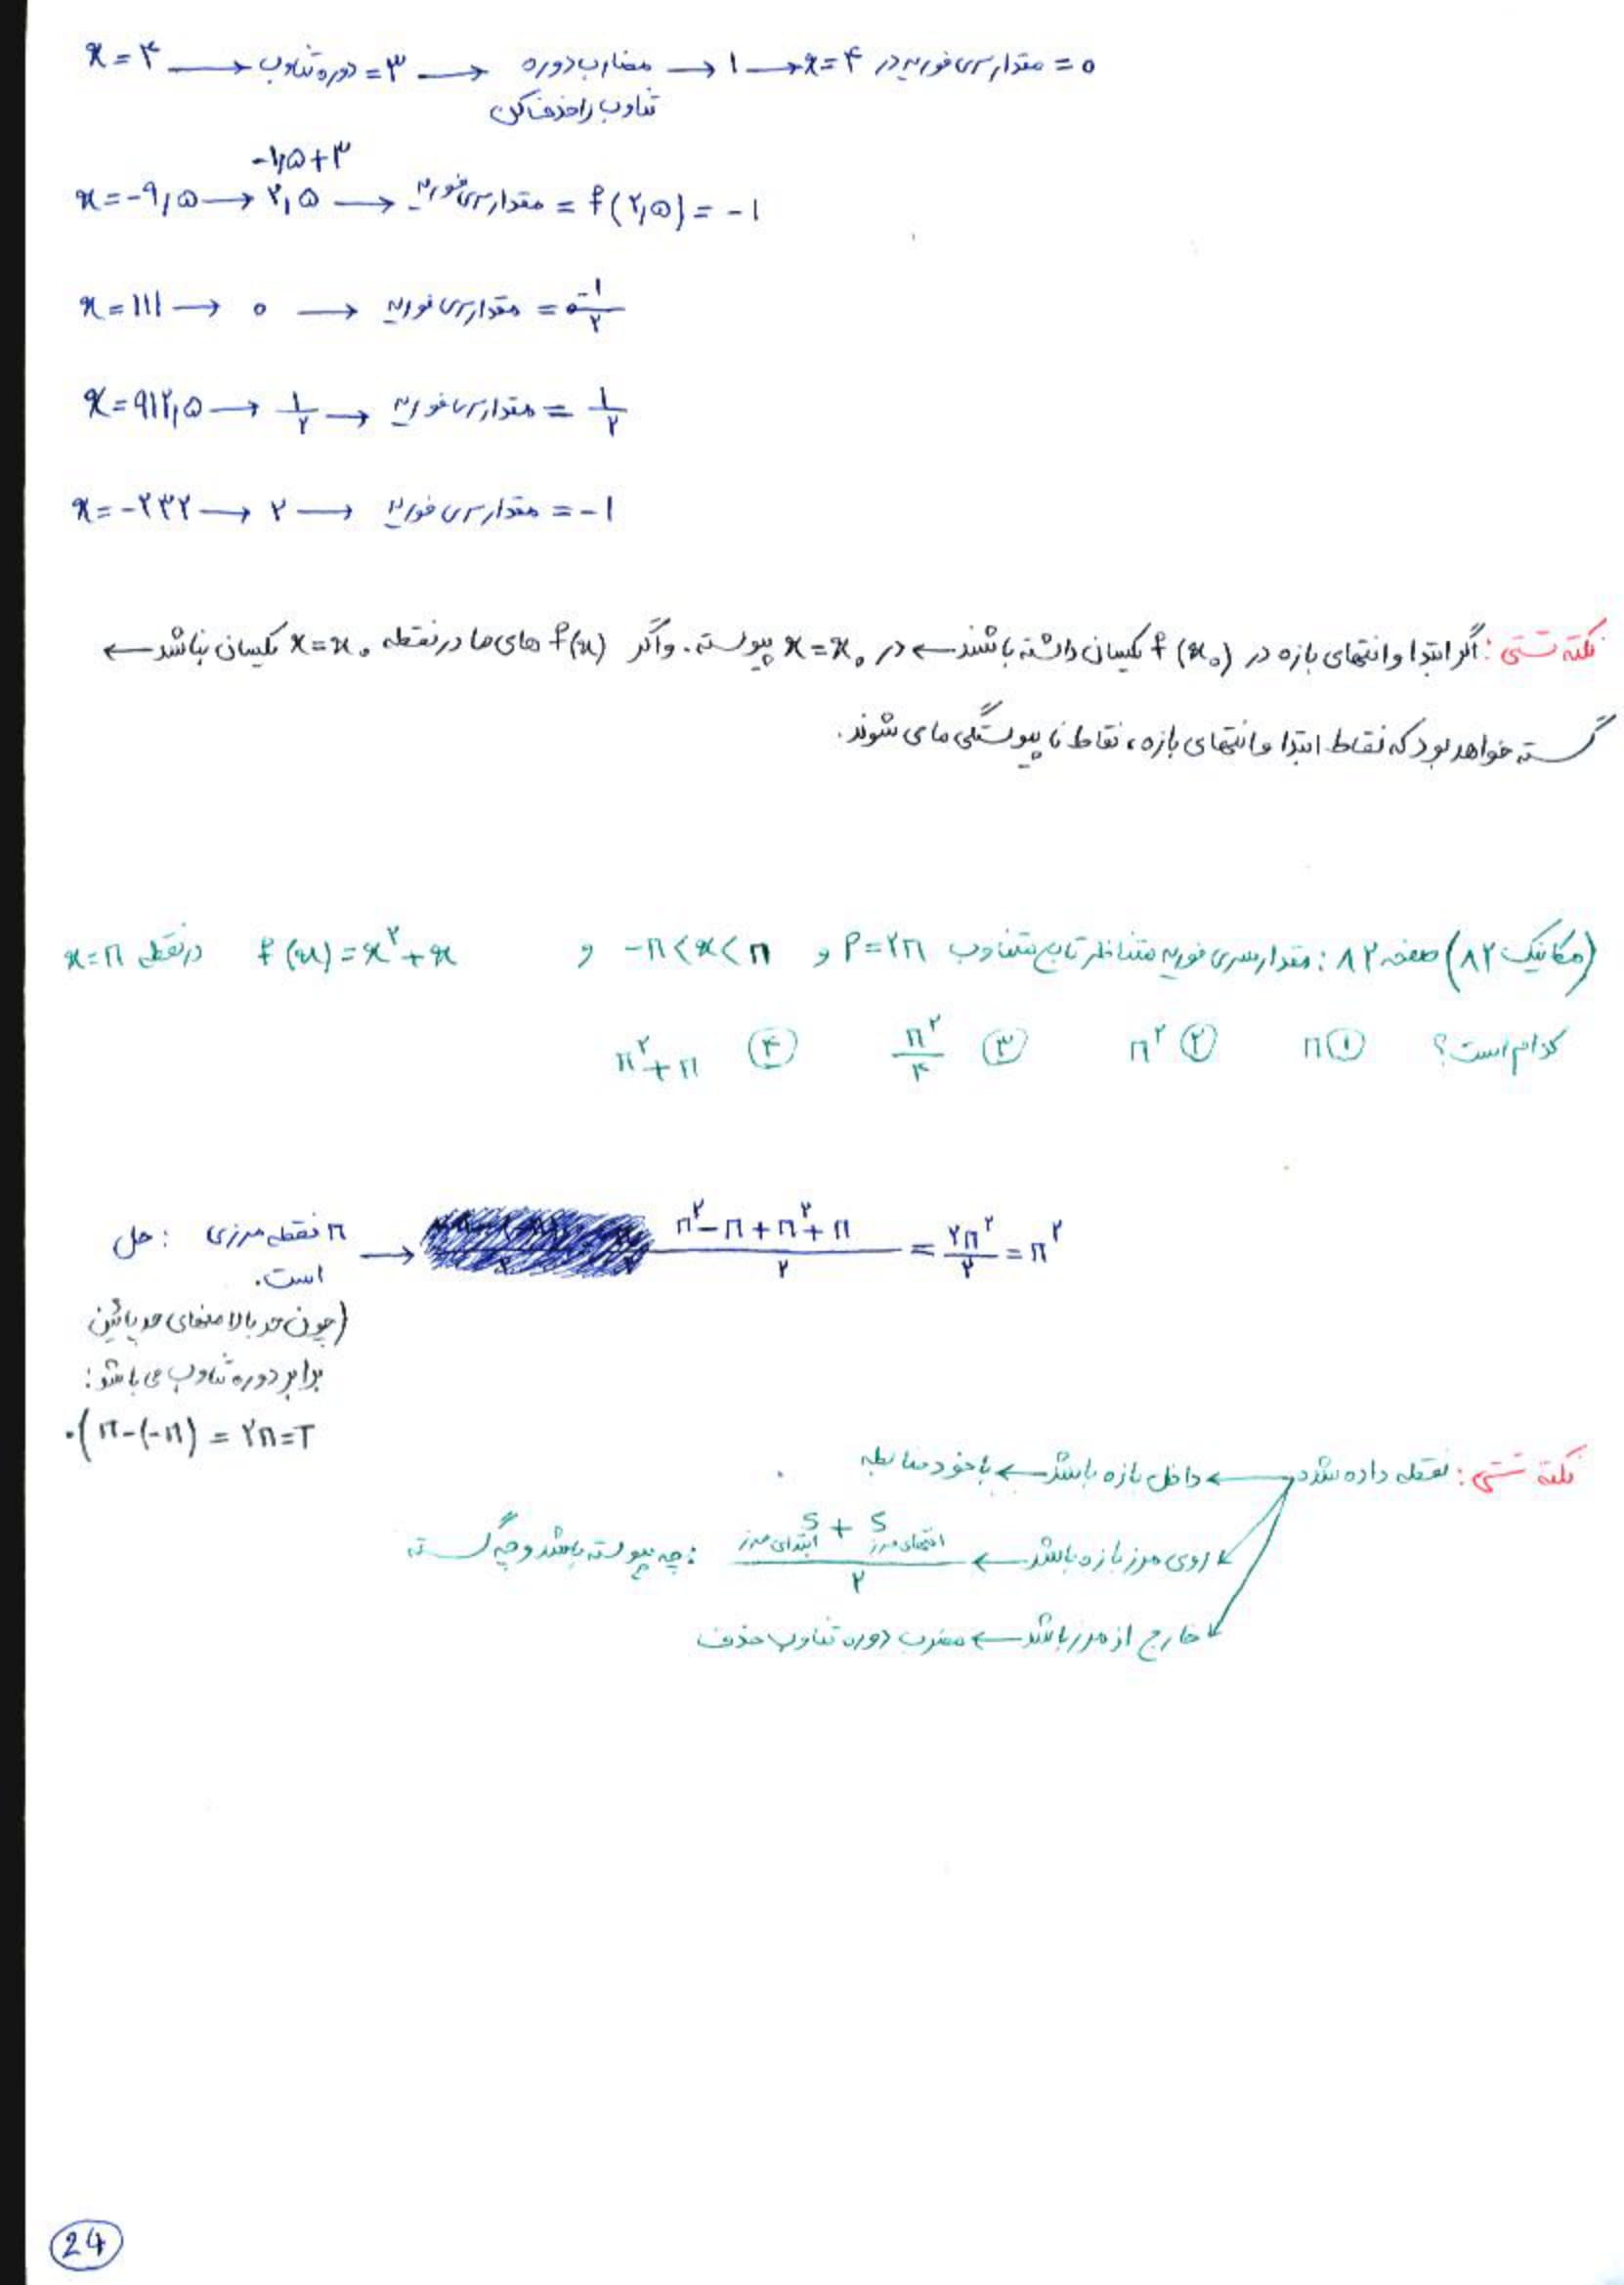 x = ۴ → دوره تناوب = ۳ → مضارب دوره → ۱ → x = ۴ مقدار سری فوریه در = ۰
تناوب را حذف کن
-۱٫۵+۳
x = -۹٫۵ → ۲٫۵ → مقدار سری فوریه = f(۲٫۵) = -۱
x = ۱۱۱ → ۰ → مقدار سری فوریه = ۰-۱/۲
x = ۹۱۲٫۵ → ۱/۲ → مقدار سری فوریه = ۱/۲
x = -۲۳۲ → ۲ → مقدار سری فوریه = -۱
نکته تستی: اگر ابتدا و انتهای بازه در f(x₀) یکسان داشته باشند ← در x = x₀ پیوسته. و اگر f(x) های ما در نقطه x = x₀ یکسان نباشد ←
گسسته خواهد بود که نقاط ابتدا و انتهای بازه، نقاط ناپیوستگی ما می شوند.
(مکانیک ۸۲) صفحه ۸۲: مقدار سری فوریه متناظر تابع متناوب P = ۲π و -π < x < π و f(x) = x² + x در نقطه x = π
کدام است؟ ① π ② π² ③ π²/۴ ④ π² + π
حل: π نقطه مرزی است. → (π² - π + π² + π)/۲ = ۲π²/۲ = π²
(چون حد بالا منهای حد پائین
برابر دوره تناوب می باشد:
.(π-(-π) = ۲π = T
نکته تستی: نقطه داده شده ← داخل بازه باشد ← با خود ضابطه
روی مرز بازه باشد ← (S انتهای مرز + S ابتدای مرز)/۲ : چه پیوسته باشد و چه گسسته
خارج از مرز باشد ← مضرب دوره تناوب حذف
24